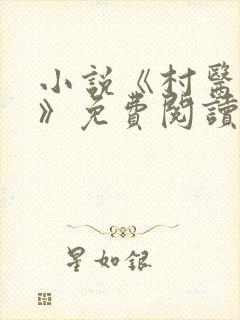 小說《村醫
》免費閱讀
星如銀